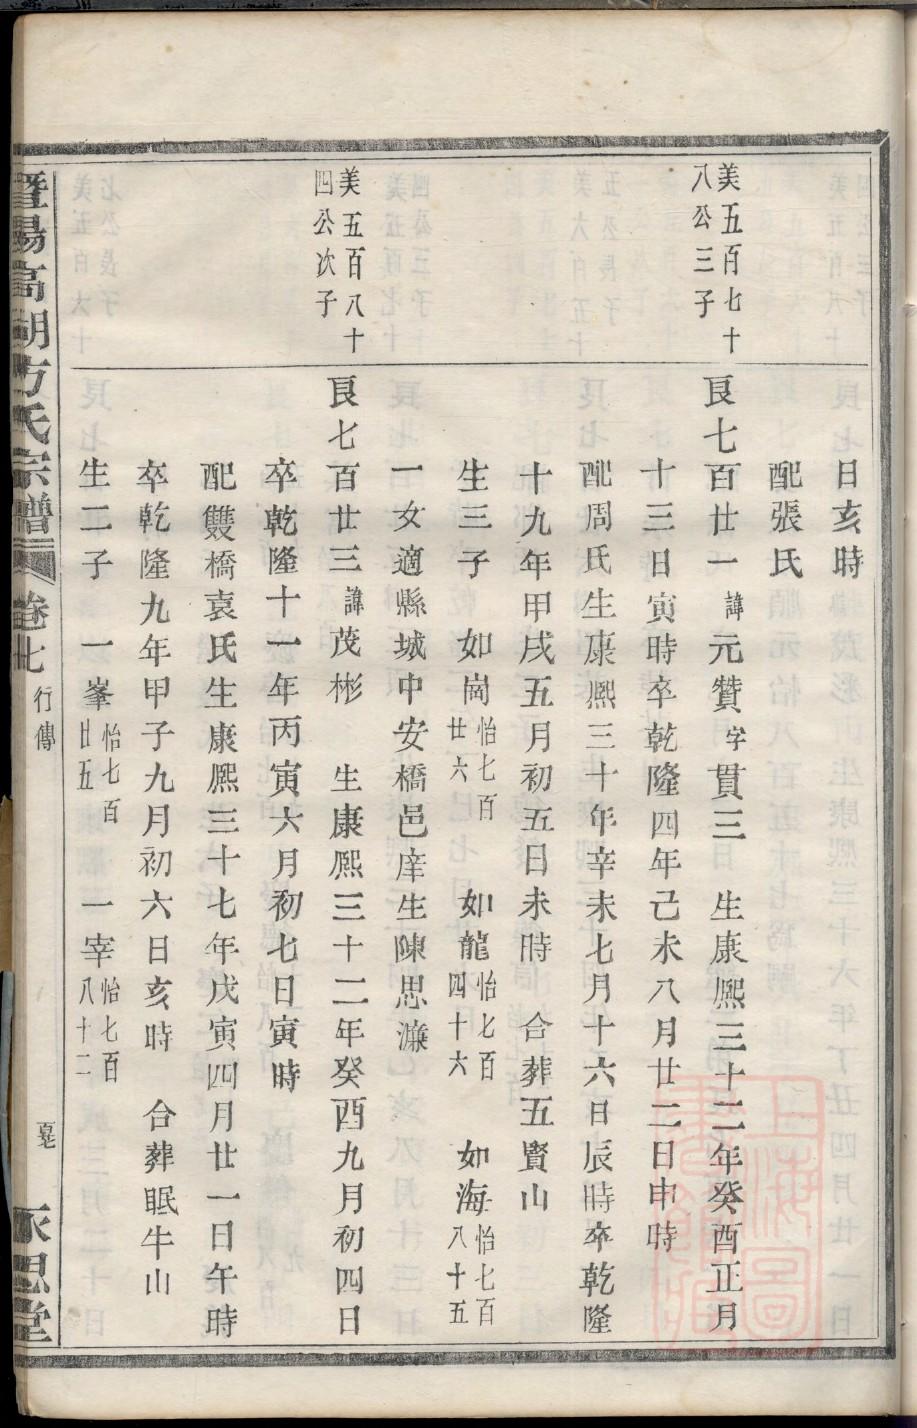 日亥時
配張氏
美五百七十
八公三子
良七百廿一 諱元贊字貫三 生康熙三十二年癸酉正月
十三日寅時卒乾隆四年己未八月廿二日申時
配周氏生康熙三十年辛未七月十六日辰時卒乾隆
十九年甲戌五月初五日未時 合葬五賢山
生三子 如崗怡七百廿六 如龍怡七百四十六 如海怡七百八十五
一女適縣城中安橋邑庠生陳思濂
美五百八十
四公次子
良七百廿三諱茂彬 生康熙三十二年癸酉九月初四日
卒乾隆十一年丙寅六月初七日寅時
配雙橋袁氏生康熙三十七年戊寅四月廿一日午時
卒乾隆九年甲子九月初六日亥時 合葬眠牛山
生二子 一峯怡七百廿五 一宰怡七百八十二
暨陽高湖方氏宗譜 卷七 行傳 永思堂